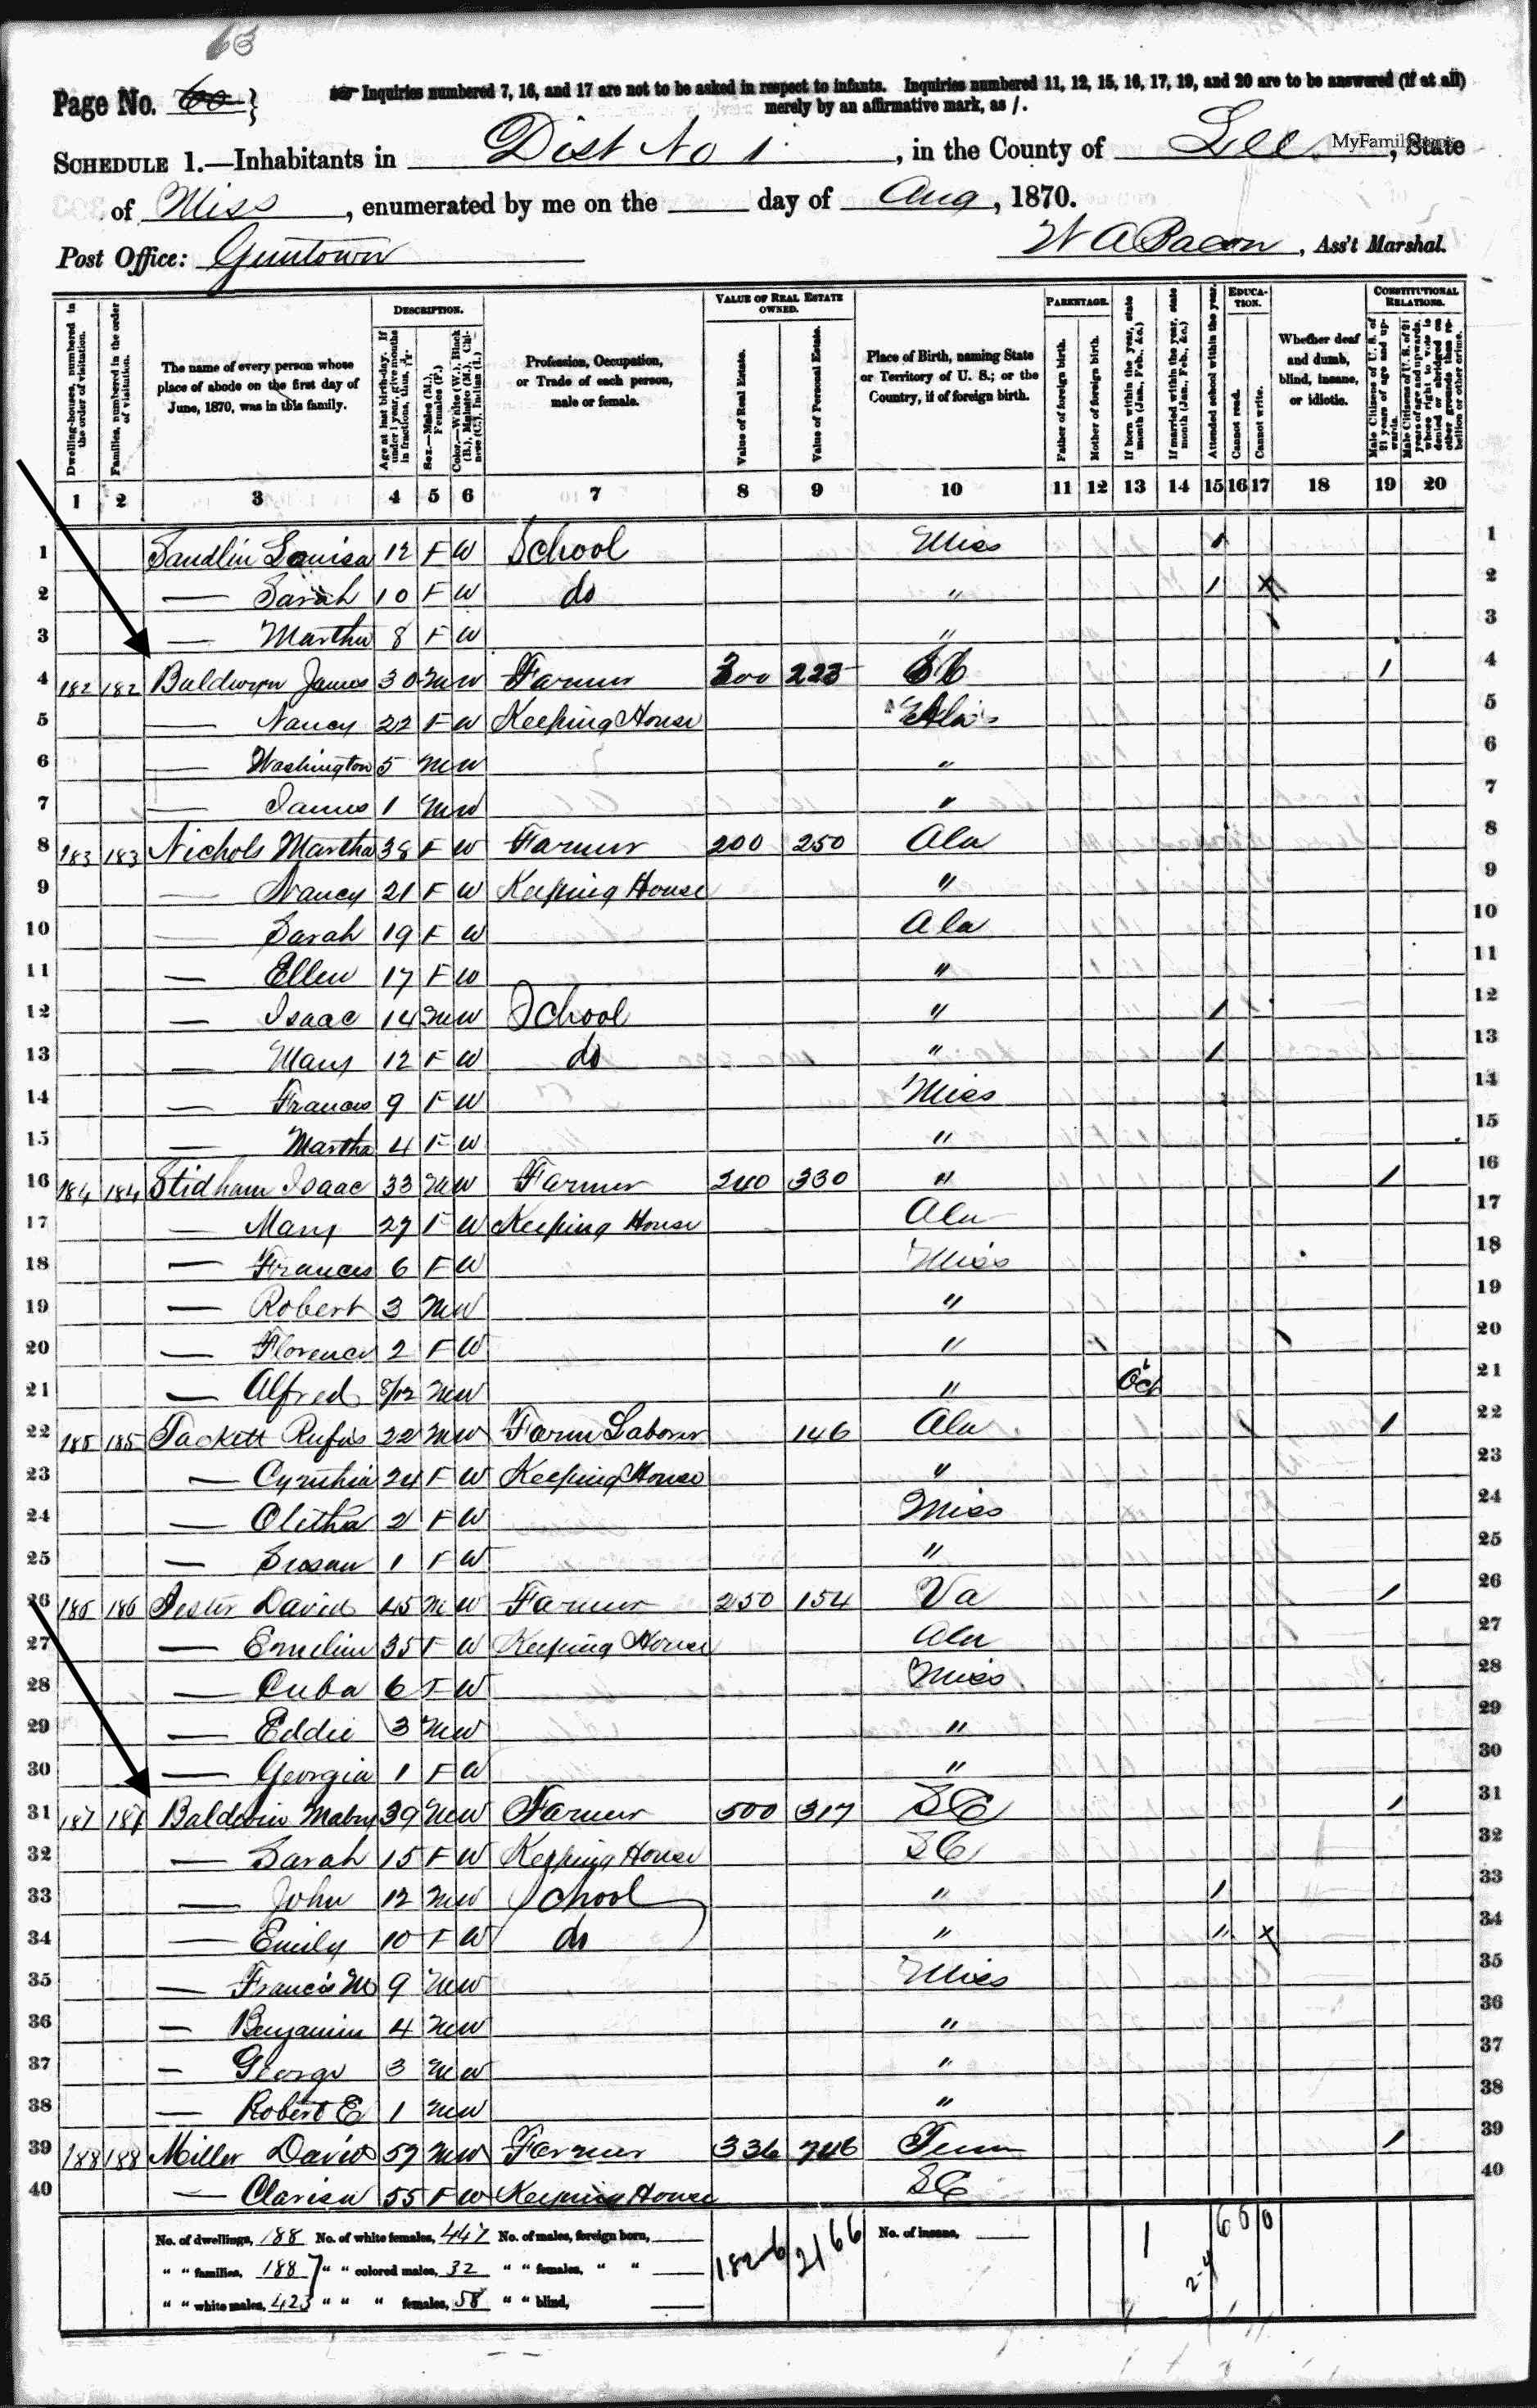 63
Page No. 60 }
Inquiries numbered 7, 16, and 17 are not to be asked in respect to infants. Inquiries numbered 11, 12, 15, 16, 17, 19, and 20 are to be answered (if at all)
merely by an affirmative mark, as /.
SCHEDULE 1.—Inhabitants in Dist No 1, in the County of Lee, State
of Miss, enumerated by me on the day of Aug, 1870.
Post Office: Guntown
W A Bacon, Ass't Marshal.
DESCRIPTION. VALUE OF REAL ESTATE OWNED. PARENTAGE. EDUCATION. CONSTITUTIONAL RELATIONS.
Dwelling-houses, numbered in the order of visitation.
Families, numbered in the order of visitation.
The name of every person whose place of abode on the first day of June, 1870, was in this family.
Age at last birth-day. If under 1 year, give months in fractions, thus,
Sex.—Males (M.), Females (F.)
Color.—White (W.), Black (B.), Mulatto (M.), Chinese (C.), Indian (I.)
Profession, Occupation, or Trade of each person, male or female.
Value of Real Estate.
Value of Personal Estate.
Place of Birth, naming State or Territory of U. S.; or the Country, if of foreign birth.
Father of foreign birth.
Mother of foreign birth.
If born within the year, state month (Jan., Feb., &c.)
If married within the year, state month (Jan., Feb., &c.)
Attended school within the year.
Cannot read.
Cannot write.
Whether deaf and dumb, blind, insane, or idiotic.
Male Citizens of U. S. of 21 years of age and upwards.
Male Citizens of U. S. of 21 years of age and upwards, whose right to vote is denied or abridged on other grounds than rebellion or other crime.
1 2 3 4 5 6 7 8 9 10 11 12 13 14 15 16 17 18 19 20
1 Sandlin Louisa 12 F W School Miss / 1
2 — Sarah 10 F W do " / X 2
3 — Martha 8 F W " 3
4 182 182 Baldwyn James 30 M W Farmer 300 225 SC / 4
5 — Nancy 22 F W Keeping House 5
6 — Washington 5 M W " 6
7 — James 1 M W " 7
8 183 183 Nichols Martha 38 F W Farmer 200 250 Ala 8
9 — Nancy 21 F W Keeping House " 9
10 — Sarah 19 F W Ala 10
11 — Ellen 17 F W " 11
12 — Isaac 14 M W School " / 12
13 — Mary 12 F W do " / 13
14 — Frances 9 F W Miss 14
15 — Martha 4 F W " 15
16 184 184 Stidham Isaac 33 M W Farmer 240 330 " / 16
17 — Mary 27 F W Keeping House Ala 17
18 — Frances 6 F W Miss 18
19 — Robert 3 M W " 19
20 — Florence 2 F W " 20
21 — Alfred 8/12 M W " Oct 21
22 185 185 Tackett Rufus 22 M W Farm Laborer 146 Ala / 22
23 — Cynthia 24 F W Keeping House " 23
24 — Olitha 2 F W Miss 24
25 — Susan 1 F W " 25
26 186 186 Jester David 45 M W Farmer 250 154 Va / 26
27 — Emeline 35 F W Keeping House Ala 27
28 — Cuba 6 F W Miss 28
29 — Eddie 3 M W " 29
30 — Georgia 1 F W " 30
31 187 187 Baldwin Mabry 39 M W Farmer 500 317 SC / 31
32 — Sarah 15 F W Keeping House SC 32
33 — John 12 M W School " / 33
34 — Emily 10 F W do " " X 34
35 — Francis M 9 M W Miss 35
36 — Benjamin 4 M W " 36
37 — George 3 M W " 37
38 — Robert E 1 M W " 38
39 188 188 Miller David 57 M W Farmer 336 746 Tenn / 39
40 — Clarisa 55 F W Keeping House SC 40
No. of dwellings, 188 No. of white females, 447 No. of males, foreign born, 1826 2166 No. of insane, 1
" " families, 188 " " colored males, 32 " " females, " "
" " white males, 423 " " " females, 58 " " blind,